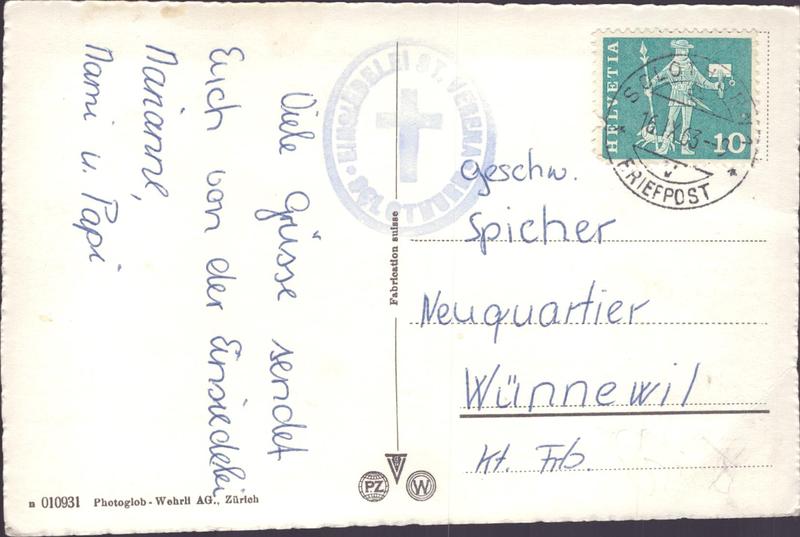 Viele Grüsse sendet
Euch von der Einsiedelei
Marianne,
Mami u. Papi
EINSIEDELEI ST. VERENA
SOLOTHURN
HELVETIA
10
BRIEFPOST
Geschw.
Spicher
Neuquartier
Wünnewil
Kt. Frb.
Fabrication suisse
n 010931 Photoglob - Wehrli AG., Zürich
PZ
W